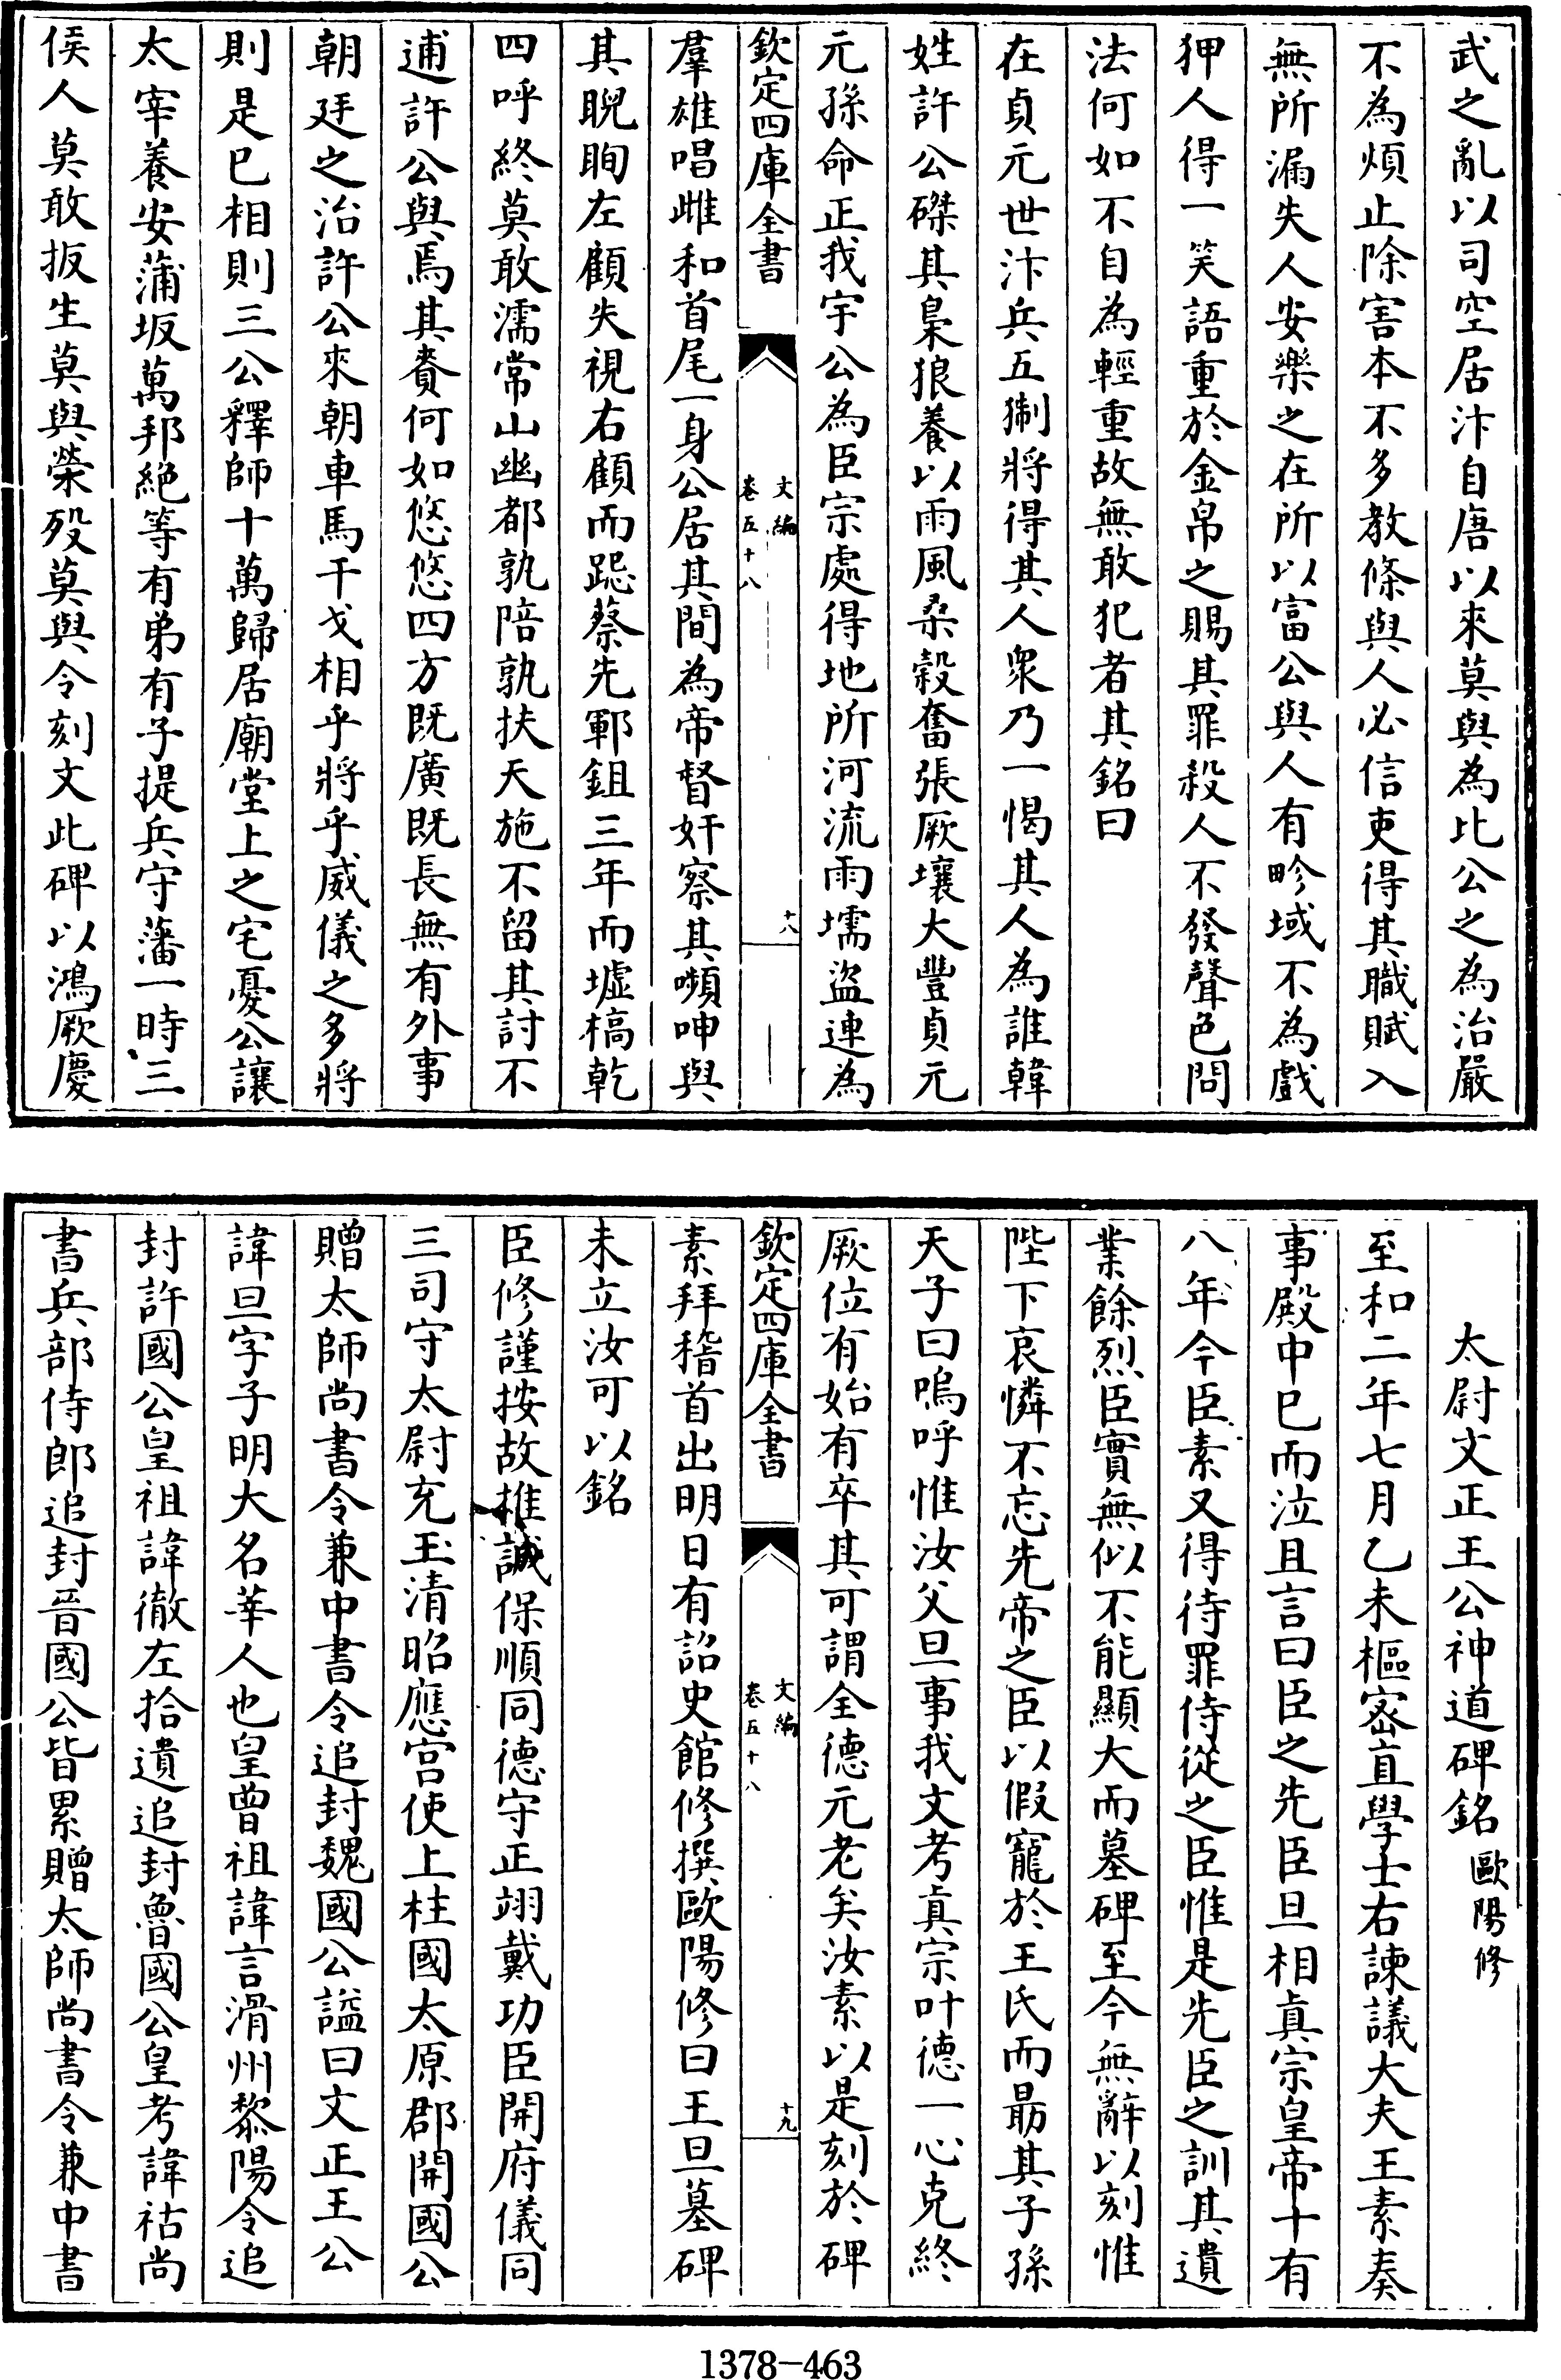 武之亂以司空居汴自唐以來莫與為比公之為治嚴
不為煩止除害本不多教條與人必信吏得其職賦入
無所漏失人安樂之在所以富公與人有畛域不為戲
狎人得一笑語重於金帛之賜其罪殺人不發聲色問
法何如不自為輕重故無敢犯者其銘曰
在貞元世汴兵五猘將得其人衆乃一愒其人為誰韓
姓許公磔其梟狼養以雨風桑穀奮張厥壤大豐貞元
元孫命正我宇公為臣宗處得地所河流雨壖盜連為
欽定四庫全書
文編
卷五十八
十八
羣雄唱雌和首尾一身公居其間為帝督奸察其嚬呻與
其睨眴左顧失視右顧而跽蔡先鄆鉏三年而墟槁乾
四呼終莫敢濡常山幽都孰陪孰扶天施不留其討不
逋許公與焉其賚何如悠悠四方既廣既長無有外事
朝廷之治許公來朝車馬干戈相乎將乎威儀之多將
則是已相則三公釋師十萬歸居廟堂上之宅憂公讓
太宰養安蒲坂萬邦絕等有弟有子提兵守藩一時三
侯人莫敢扳生莫與榮歿莫與令刻文此碑以鴻厥慶
太尉文正王公神道碑銘 歐陽修
至和二年七月乙未樞密直學士右諫議大夫王素奏
事殿中已而泣且言曰臣之先臣旦相真宗皇帝十有
八年今臣素又得待罪侍從之臣惟是先臣之訓其遺
業餘烈臣實無似不能顯大而墓碑至今無辭以刻惟
陛下哀憐不忘先帝之臣以假寵於王氏而勗其子孫
天子曰嗚呼惟汝父旦事我文考真宗叶德一心克終
厥位有始有卒其可謂全德元老矣汝素以是刻於碑
欽定四庫全書
文編
卷五十八
十九
素拜稽首出明日有詔史館修撰歐陽修曰王旦墓碑
未立汝可以銘
臣修謹按故推誠保順同德守正翊戴功臣開府儀同
三司守太尉充玉清昭應宫使上柱國太原郡開國公
贈太師尚書令兼中書令追封魏國公謚曰文正王公
諱旦字子明大名莘人也皇曾祖諱言滑州黎陽令追
封許國公皇祖諱徹左拾遺追封魯國公皇考諱祜尚
書兵部侍郎追封晉國公皆累贈太師尚書令兼中書
1378-463